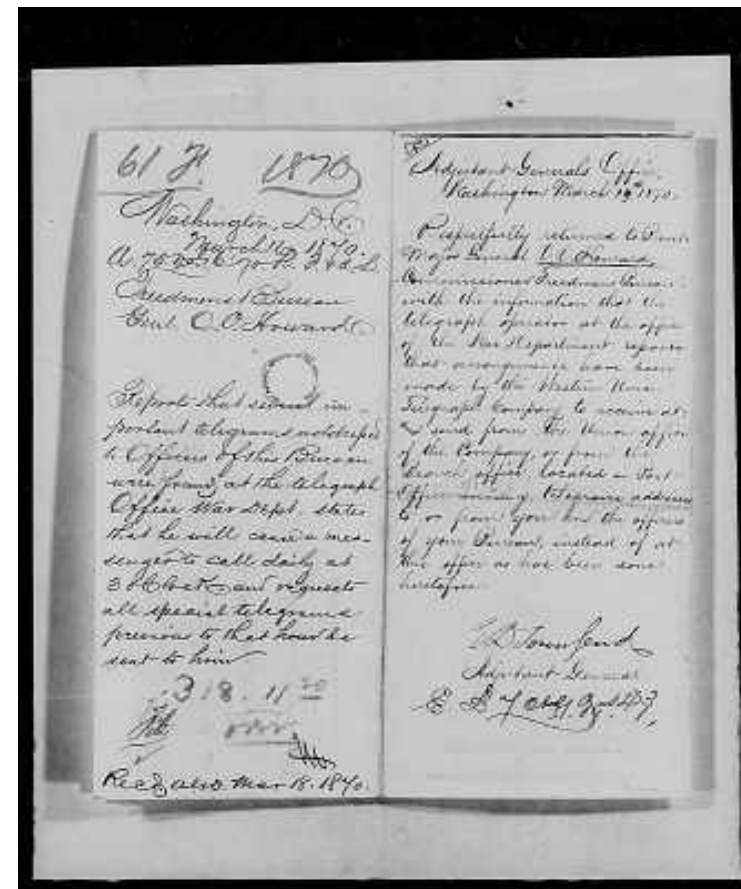 61 F. 1870
Washington, D.C.
March 16, 1870.
Freedmens Bureau
Genl. O. O. Howard
Reports that several im-
portant telegrams
to Officers of this Bureau
were found at the telegraph
Office War Dept. states
that he will cause a mes-
senger to call daily at
3 o'clock and requests
all special telegrams
previous to that hour be
sent to him
318.11
Recd. AGO. Mar 18. 1870.
Adjutant Generals Office,
Washington March 19th 1870.
Respectfully returned to
Major General O.O. Howard,
Commissioner Freedmens Bureau
with the information that the
telegraph operator at the office
of the War Department reports
that arrangements have been
made by the Western Union
Telegraph Company to receive at
& send from the Union office
of the Company, or from the
branch office located in Post
Office telegrams address
to or from you and the officers
of your Bureau, instead of at
this office as has been done
heretofore.
E D Townsend
Adjutant General